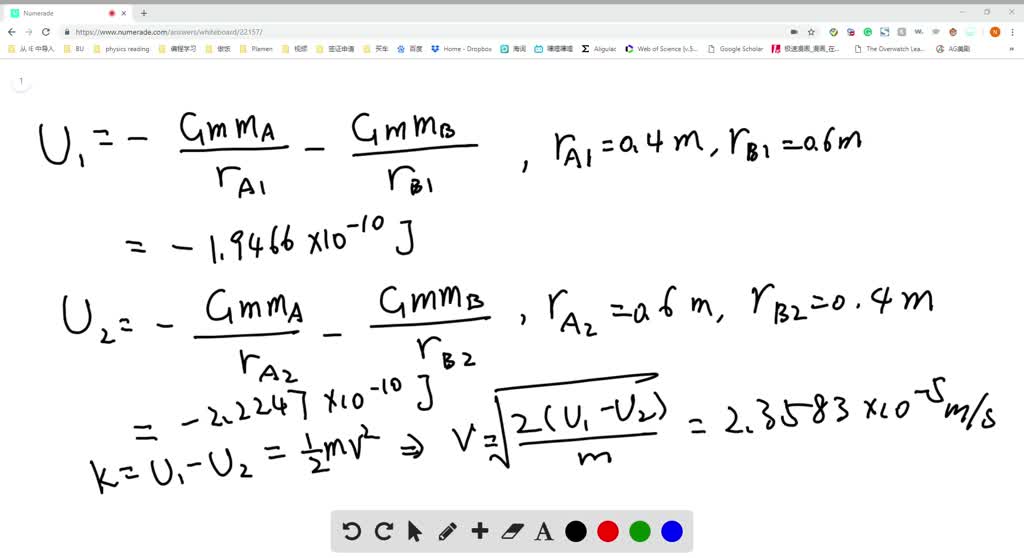 Numerade
https://www.numerade.com/answers/whiteboard/22157/
从 IE 中导入 BU physics reading 编程学习 做饭 Plamen 视频 签证申请 买车 百度 Home - Dropbox 海词 嘀嗒嘀嗒 Aligulac Web of Science [v.5... Google Scholar 极速漫画_漫画_在... The Overwatch Lea... AG美剧
1
U₁ = - GmmA/rA1 - GmmB/rB1 , rA1 = 0.4 m, rB1 = 0.6 m
= - 1.9466 ×10⁻¹⁰ J
U₂ = - GmmA/rA2 - GmmB/rB2 , rA2 = 0.6 m, rB2 = 0.4 m
= -2.2247 ×10⁻¹⁰ J
K = U₁ - U₂ = ½mv² ⇒ V = √(2(U₁ - U₂)/m) = 2.3583 ×10⁻⁵ m/s
A